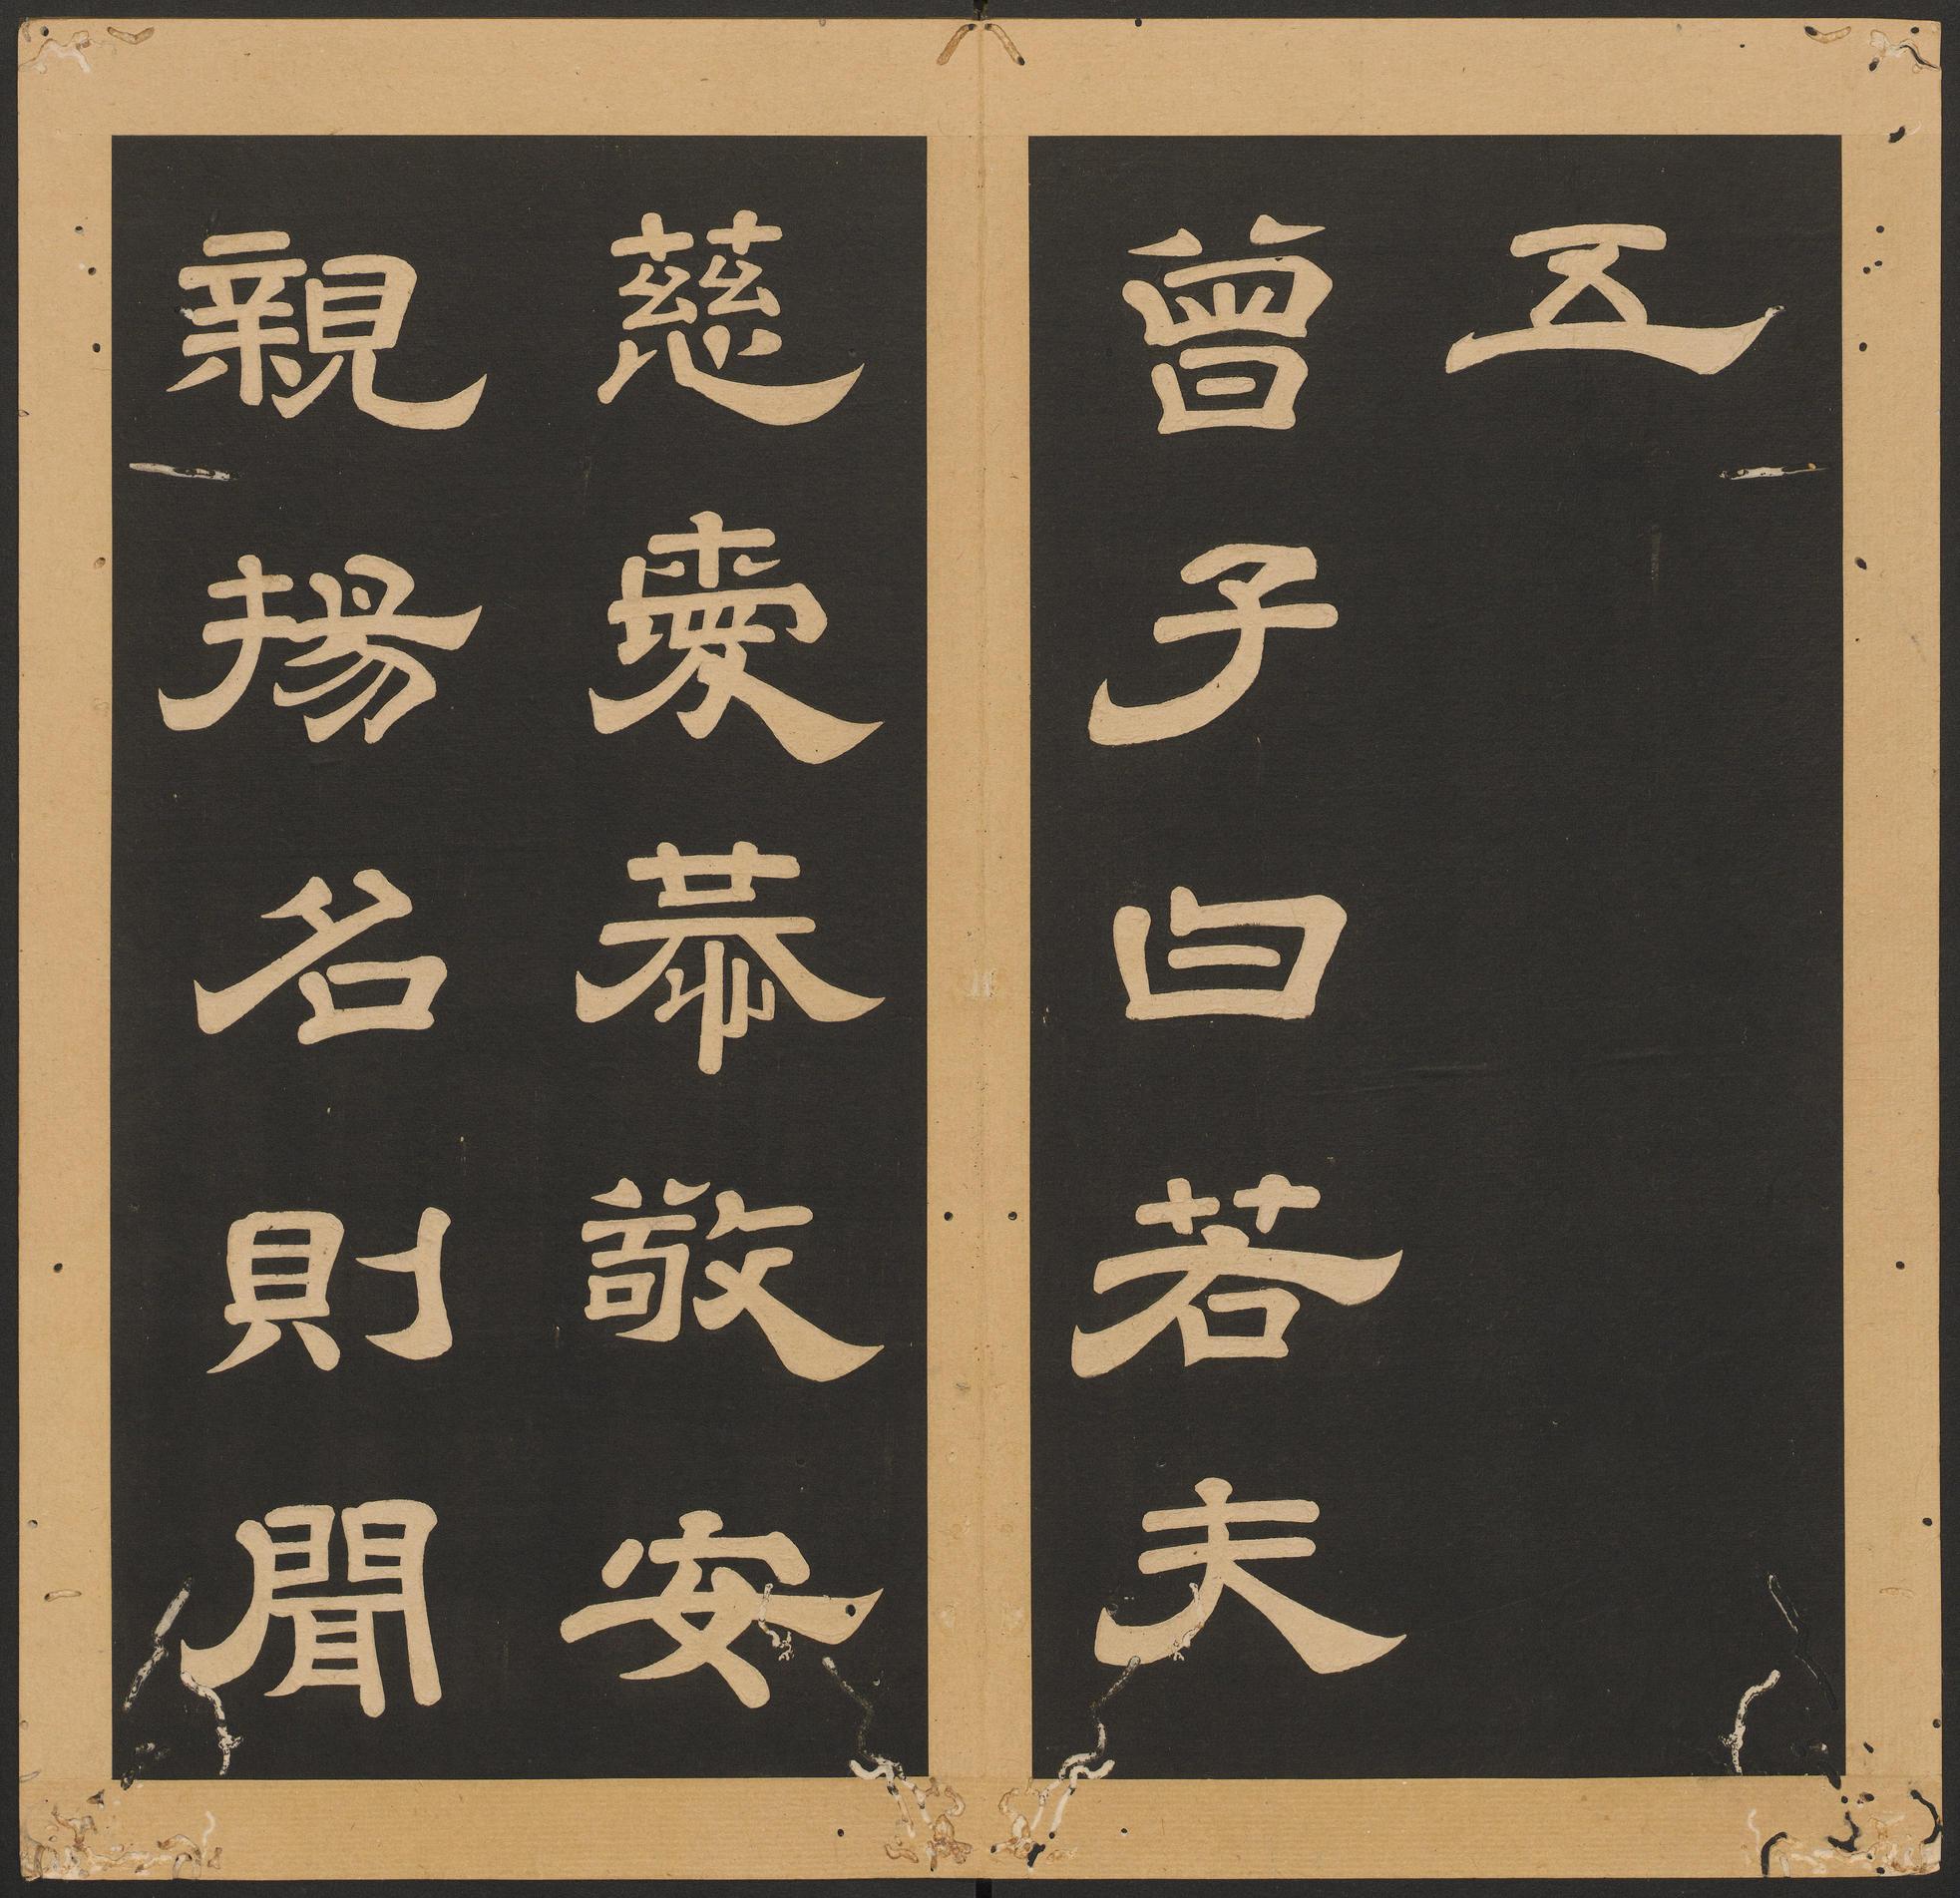 五
曾子曰若夫
慈愛恭敬安
親揚名則聞